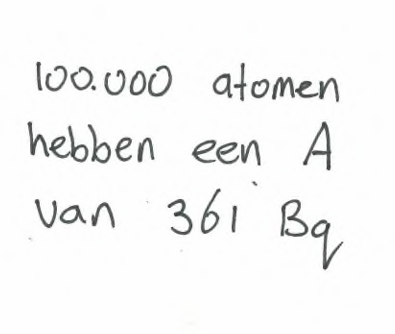 100.000 atomen
hebben een A
van 361 Bq